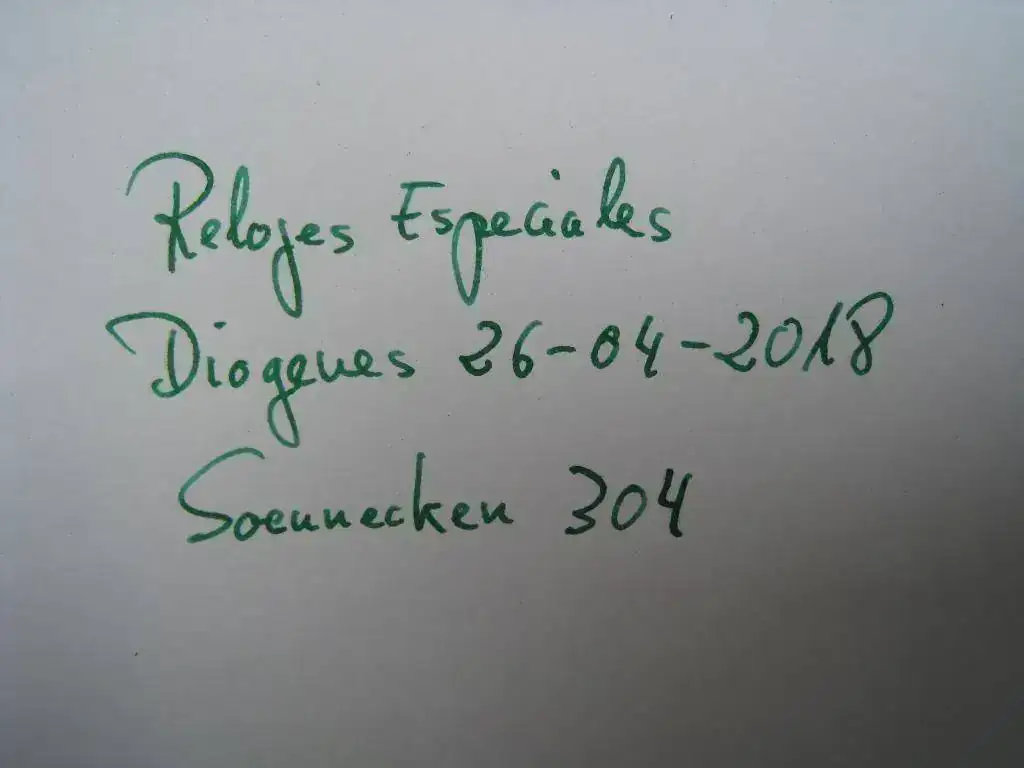 Relojes Especiales
Diogenes 26-04-2018
Soennecken 304